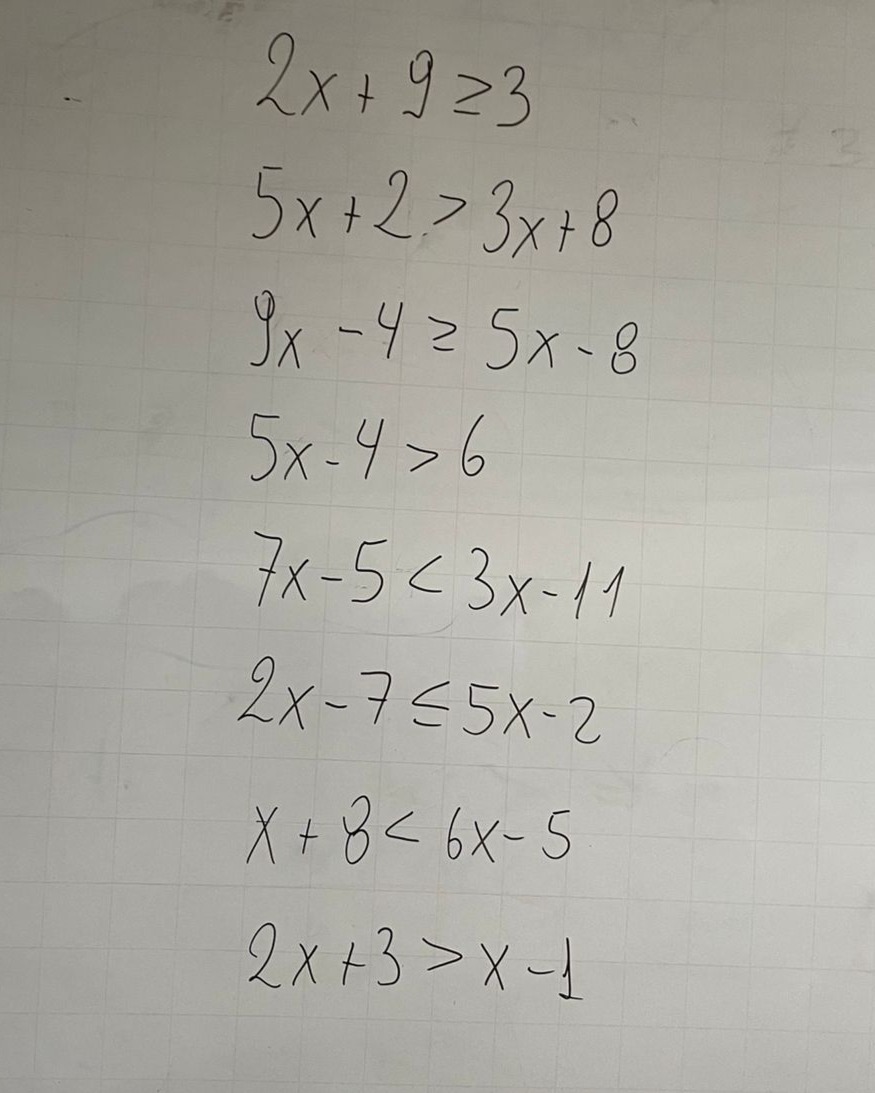 2x + 9 ≥ 3
5x + 2 > 3x + 8
9x - 4 ≥ 5x - 8
5x - 4 > 6
7x - 5 < 3x - 11
2x - 7 ≤ 5x - 2
x + 8 < 6x - 5
2x + 3 > x - 1